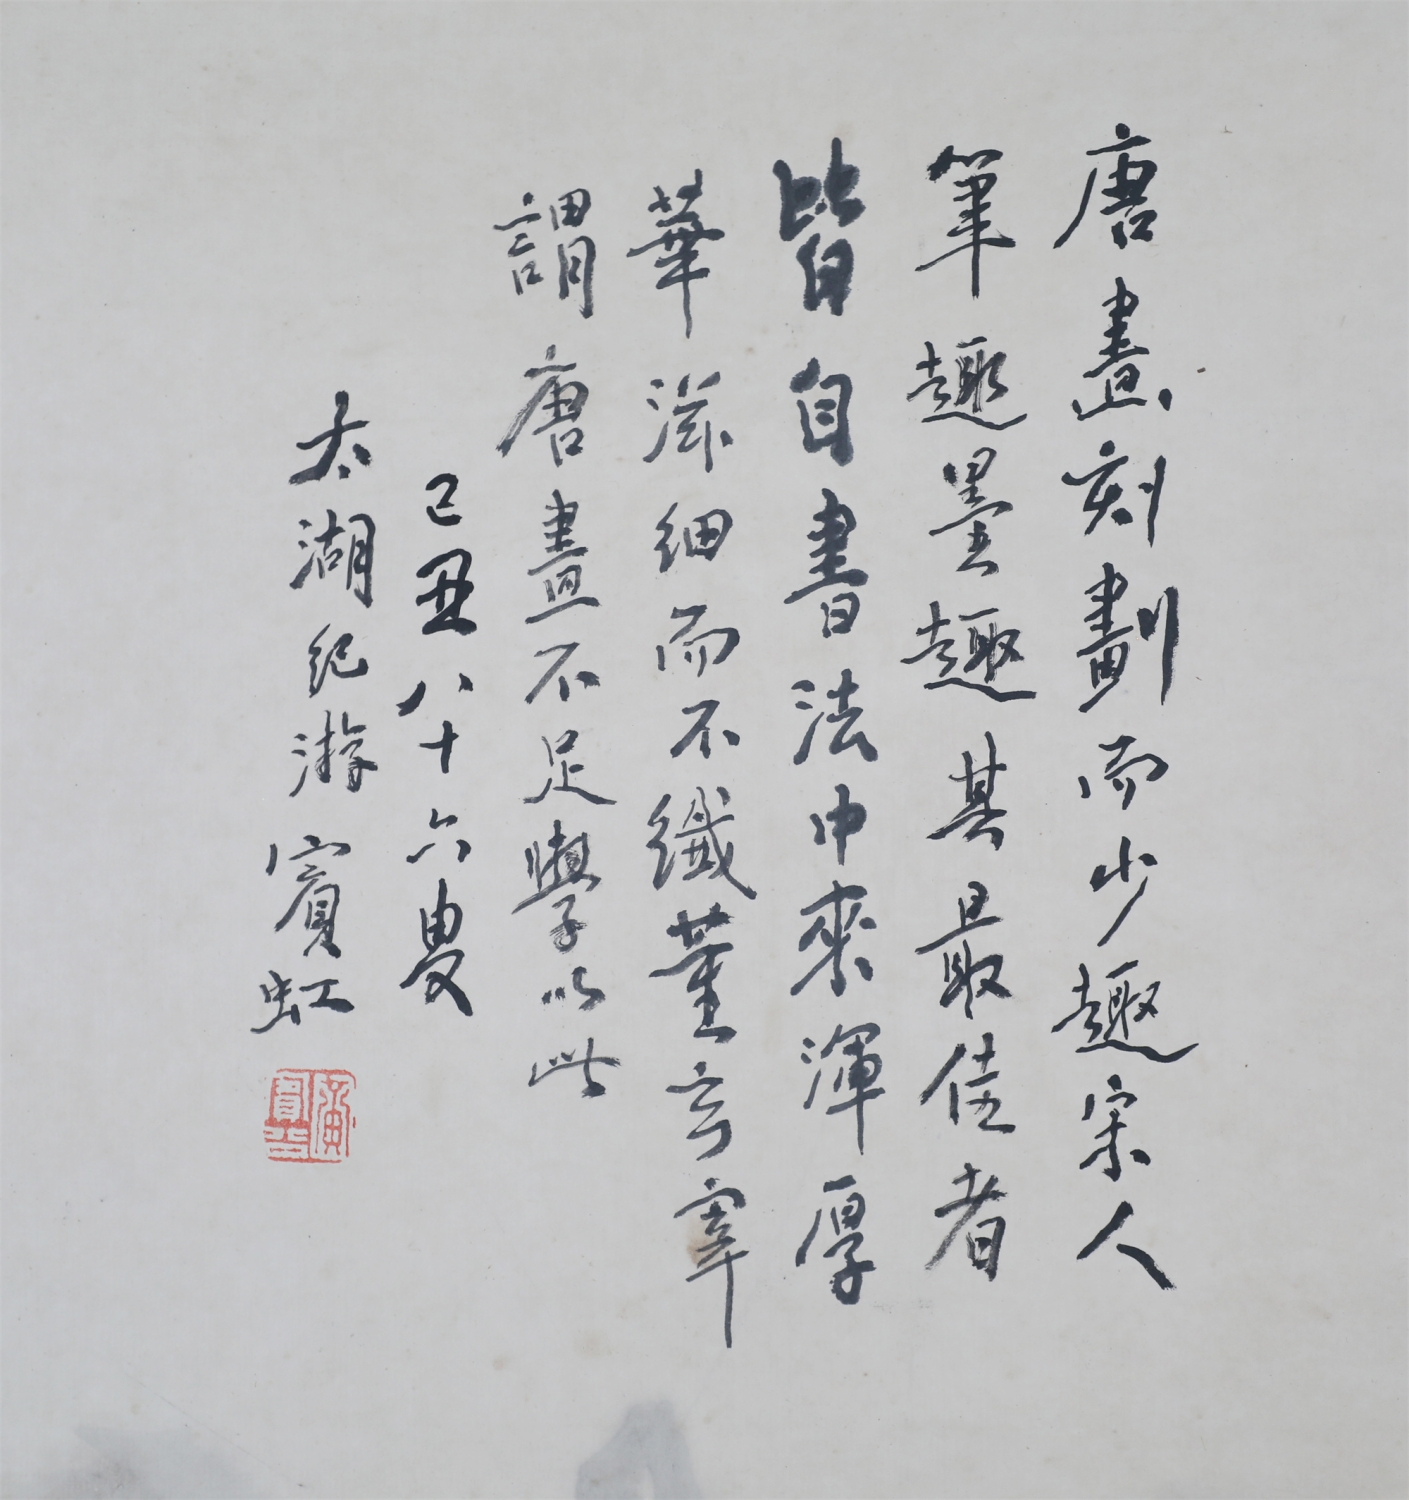 唐畫刻劃而少趣宋人
筆趣墨趣其最佳者
皆自書法中來渾厚
華滋細而不纖董玄宰
謂唐畫不足學以此
己丑八十六叟
太湖紀游賓虹